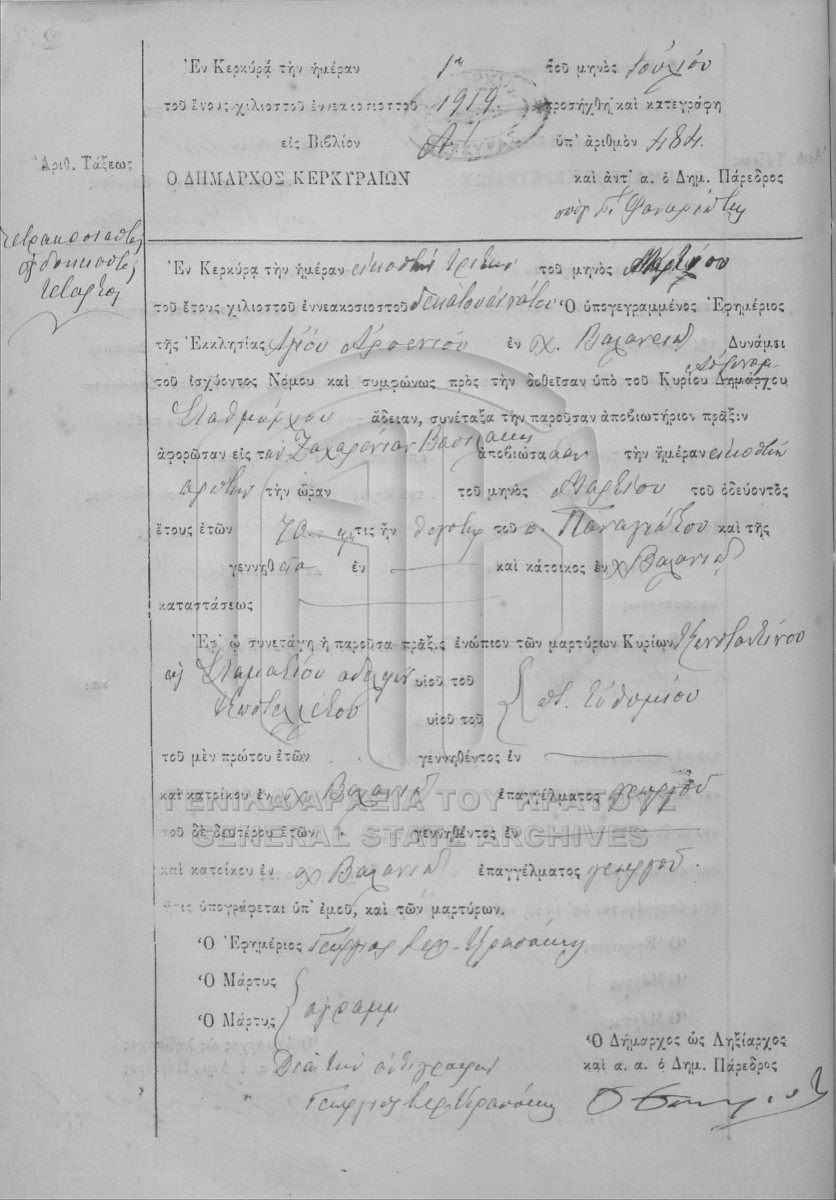 Ἐν Κερκύρᾳ τὴν ἡμέραν 1η τοῦ μηνὸς Ἰουλίου
τοῦ ἔτους χιλιοστοῦ ἐννεακοσιοστοῦ 1919 προσήχθη καὶ κατεγράφη
εἰς Βιβλίον Α' ὑπ' ἀριθμὸν 484.
Ἀριθ. Τάξεως
Ο ΔΗΜΑΡΧΟΣ ΚΕΡΚΥΡΑΙΩΝ καὶ ἀντ' α. ὁ Δημ. Πάρεδρος
τετρακοσιοστὴ
ὀγδοηκοστὴ
τετάρτη
Ἐν Κερκύρᾳ τὴν ἡμέραν εἰκοστὴν τρίτην τοῦ μηνὸς Μαρτίου
τοῦ ἔτους χιλιοστοῦ ἐννεακοσιοστοῦ δεκάτου ἐνάτου Ὁ ὑπογεγραμμένος Ἐφημέριος
τῆς Ἐκκλησίας Ἁγίου Ἀρσενίου ἐν χ. Βαλανειὸ Δυνάμει
τοῦ ἰσχύοντος Νόμου καὶ συμφώνως πρὸς τὴν δοθεῖσαν ὑπὸ τοῦ Κυρίου Δημάρχου Ἀστυνομ.
Σταθμάρχου ἄδειαν, συνέταξα τὴν παροῦσαν ἀποβιωτήριον πρᾶξιν
ἀφορῶσαν εἰς τὴν ἀποβιώσασαν τὴν ἡμέραν εἰκοστὴν
τρίτην τὴν ὥραν τοῦ μηνὸς Μαρτίου τοῦ ὁδεύοντος
ἔτους ἐτῶν 70 ἥτις ἦν θυγάτηρ τοῦ π. Παναγιώτου καὶ τῆς
γεννηθεῖσα ἐν καὶ κάτοικος ἐν χ Βαλανειὸ
καταστάσεως
Ἐφ' ᾧ συνετάγη ἡ παροῦσα πρᾶξις ἐνώπιον τῶν μαρτύρων Κυρίων Κωνσταντίνου
καὶ Σταματίου ἀδελφῶν υἱοῦ τοῦ
υἱοῦ τοῦ π. Εὐθυμίου
τοῦ μὲν πρώτου ἐτῶν γεννηθέντος ἐν
καὶ κατοίκου ἐν χ Βαλανειὸ ἐπαγγέλματος γεωργοῦ
ΓΕΝΙΚΑ ΑΡΧΕΙΑ ΤΟΥ ΚΡΑΤΟΥΣ
τοῦ δὲ δευτέρου ἐτῶν γεννηθέντος ἐν
GENERAL STATE ARCHIVES
καὶ κατοίκου ἐν χ Βαλανειὸ ἐπαγγέλματος γεωργοῦ.
ἥτις ὑπογράφεται ὑπ' ἐμοῦ, καὶ τῶν μαρτύρων.
Ὁ Ἐφημέριος Γεώργιος
Ὁ Μάρτυς
Ὁ Μάρτυς ἀγράμμ
Ὁ Δήμαρχος ὡς Ληξίαρχος
Διὰ τὴν ἀντιγραφὴν καὶ α. α. ὁ Δημ. Πάρεδρος
Γεώργιος